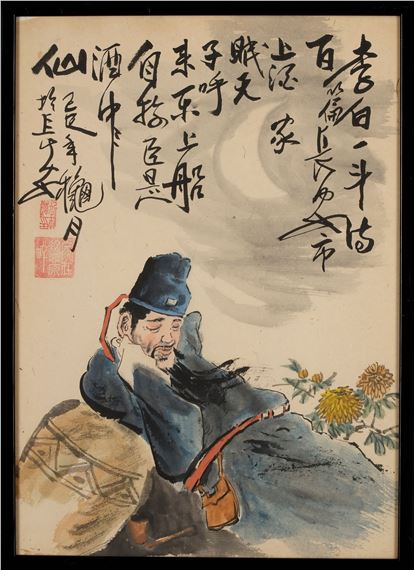 李白一斗诗
百篇长安市
上酒家
眠天
子呼
来不上船
自称臣是
酒中
仙
己巳年龝月